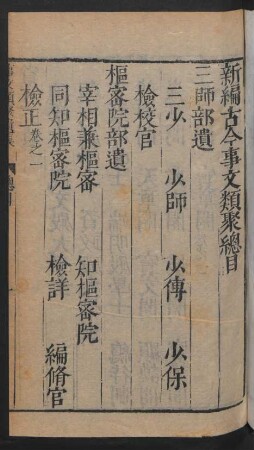 新編古今事文類聚總目
三師部遺
三少　少師　少傅　少保
檢校官
樞密院部遺
宰相兼樞密　知樞密院
同知樞密院　檢詳　編脩官
檢正卷之一